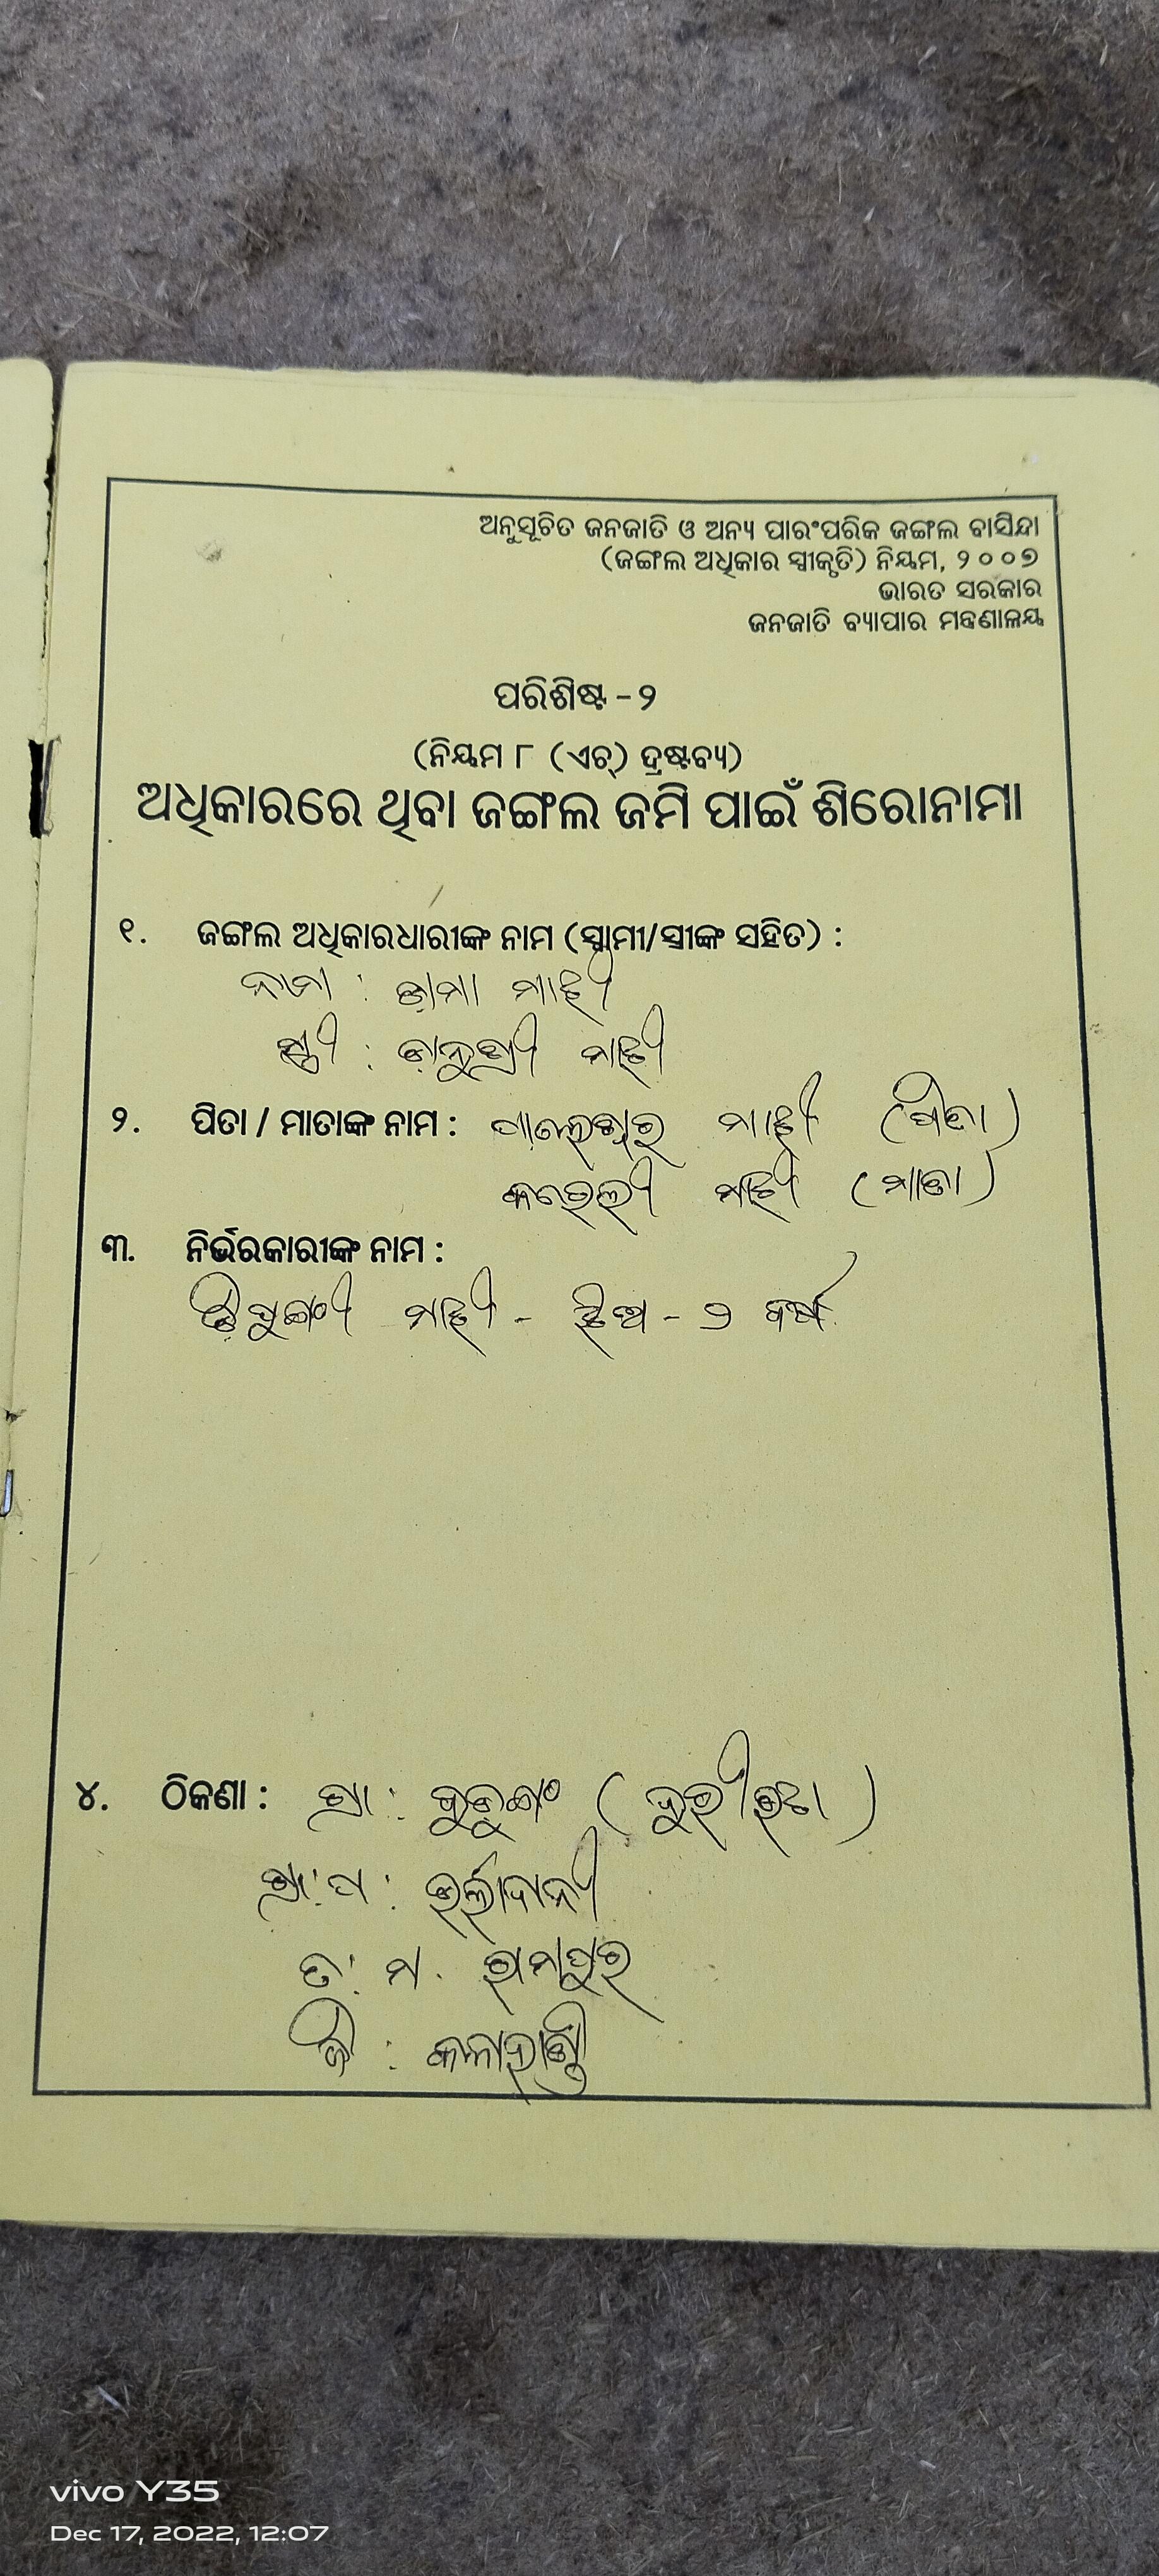 ଅନୁସୂଚିତ ଜନଜାତି ଓ ଅନ୍ୟ ପାରଂପରିକ ଜଙ୍ଗଲ ବାସିନ୍ଦା
(ଜଙ୍ଗଲ ଅଧିକାର ସ୍ୱୀକୃତି) ନିୟମ, ୨୦୦୭
ଭାରତ ସରକାର
ଜନଜାତି ବ୍ୟାପାର ମନ୍ତ୍ରଣାଳୟ
ପରିଶିଷ୍ଟ -୨
(ନିୟମ ୮ (ଏଚ୍) ଦ୍ରଷ୍ଟବ୍ୟ)
ଅଧିକାରରେ ଥିବା ଜଙ୍ଗଲ ଜମି ପାଇଁ ଶିରୋନାମା
୧. ଜଙ୍ଗଲ ଅଧିକାରଧାରୀଙ୍କ ନାମ (ସ୍ୱାମୀ/ସ୍ତ୍ରୀଙ୍କ ସହିତ) :
ନାମ : ମାଝୀ
ସ୍ତ୍ରୀ : ମାଝୀ
୨. ପିତା / ମାତାଙ୍କ ନାମ : ମାଝୀ (ପିତା)
ମାଝୀ (ମାତା)
୩. ନିର୍ଭରକାରୀଙ୍କ ନାମ :
ମାଝୀ - ଝିଅ - ୨ ବର୍ଷ
୪. ଠିକଣା : ଗ୍ରା :
ଗ୍ରା: ପ :
ତ: ମ. ରାମପୁର
ଜି : କଳାହାଣ୍ଡି
vivo Y35
Dec 17, 2022, 12:07